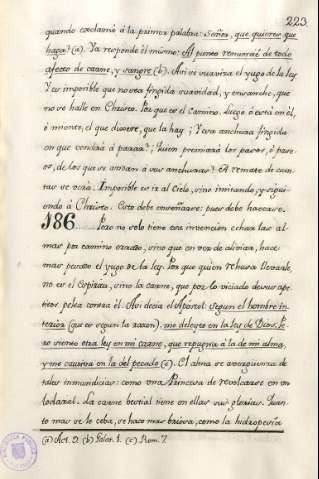 223
quando exclamó á la primer palabra: Señor, que quieres que
haga? (a). Ya responde él mismo: Al punto renuncié de todo
afecto de carne, y sangre (b). Asi se suaviza el yugo de la ley.
Y es imposible que no sea fingida suavidad, y ensanche, que
no se halle en Christo. Por que es el camino. Luego ó está en él,
ó miente, el que dixere, que la hay; Y esa anchura fingida
en que vendrá á parar? Quien premiará los pasos, ó pase-
os, de los que se animan á sus anchuras? A remate de cuen-
tas se verá. Imposible es ir al Cielo, sino imitando, y sigui-
endo á Christo. Esto debe enseñarse: pues debe hacerse.
186 Pero no solo tiene esta invencion echar las al-
mas por camino errado, sino que en vez de aliviar, hace
mas pesado el yugo de la ley. Por que quien rehusa llevarle,
no es el espiritu, sino la carne, que por lo viciado de sus ape-
titos pelea contra él. Asi decia el Apostol: Segun el hombre in-
terior (que es segun la razon), me deleyto en la ley de Dios. Pe-
ro siento otra ley en mi carne, que repugna á la de mi alma,
y me cautiva en la del pecado (c). El alma se averguenza de
tales inmundicias: como una Princesa de revolcarse en un
lodazal. La carne bestial tiene en ellas sus glorias. Quan-
to mas se le ceba, se hace mas briosa, como la hidropesia
(a) Act. 9. (b) Galat. 1. (c) Rom. 7.